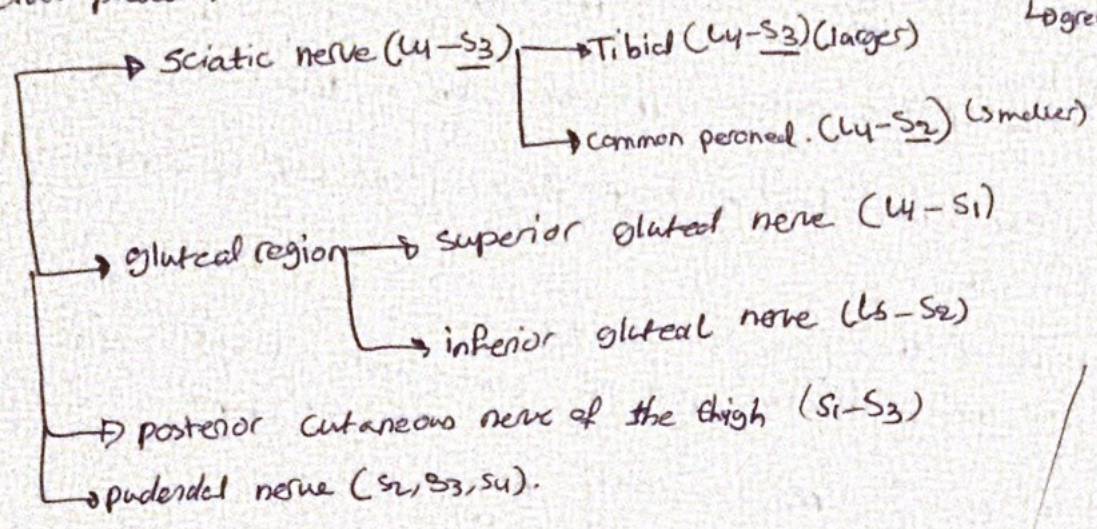 sciatic nerve (L4-S3) Tibial (L4-S3) (larger)
common peroneal. (L4-S2) (smaller)
gluteal region superior gluteal nerve (L4-S1)
inferior gluteal nerve (L5-S2)
posterior cutaneous nerve of the thigh (S1-S3)
pudendal nerve (S2, S3, S4).